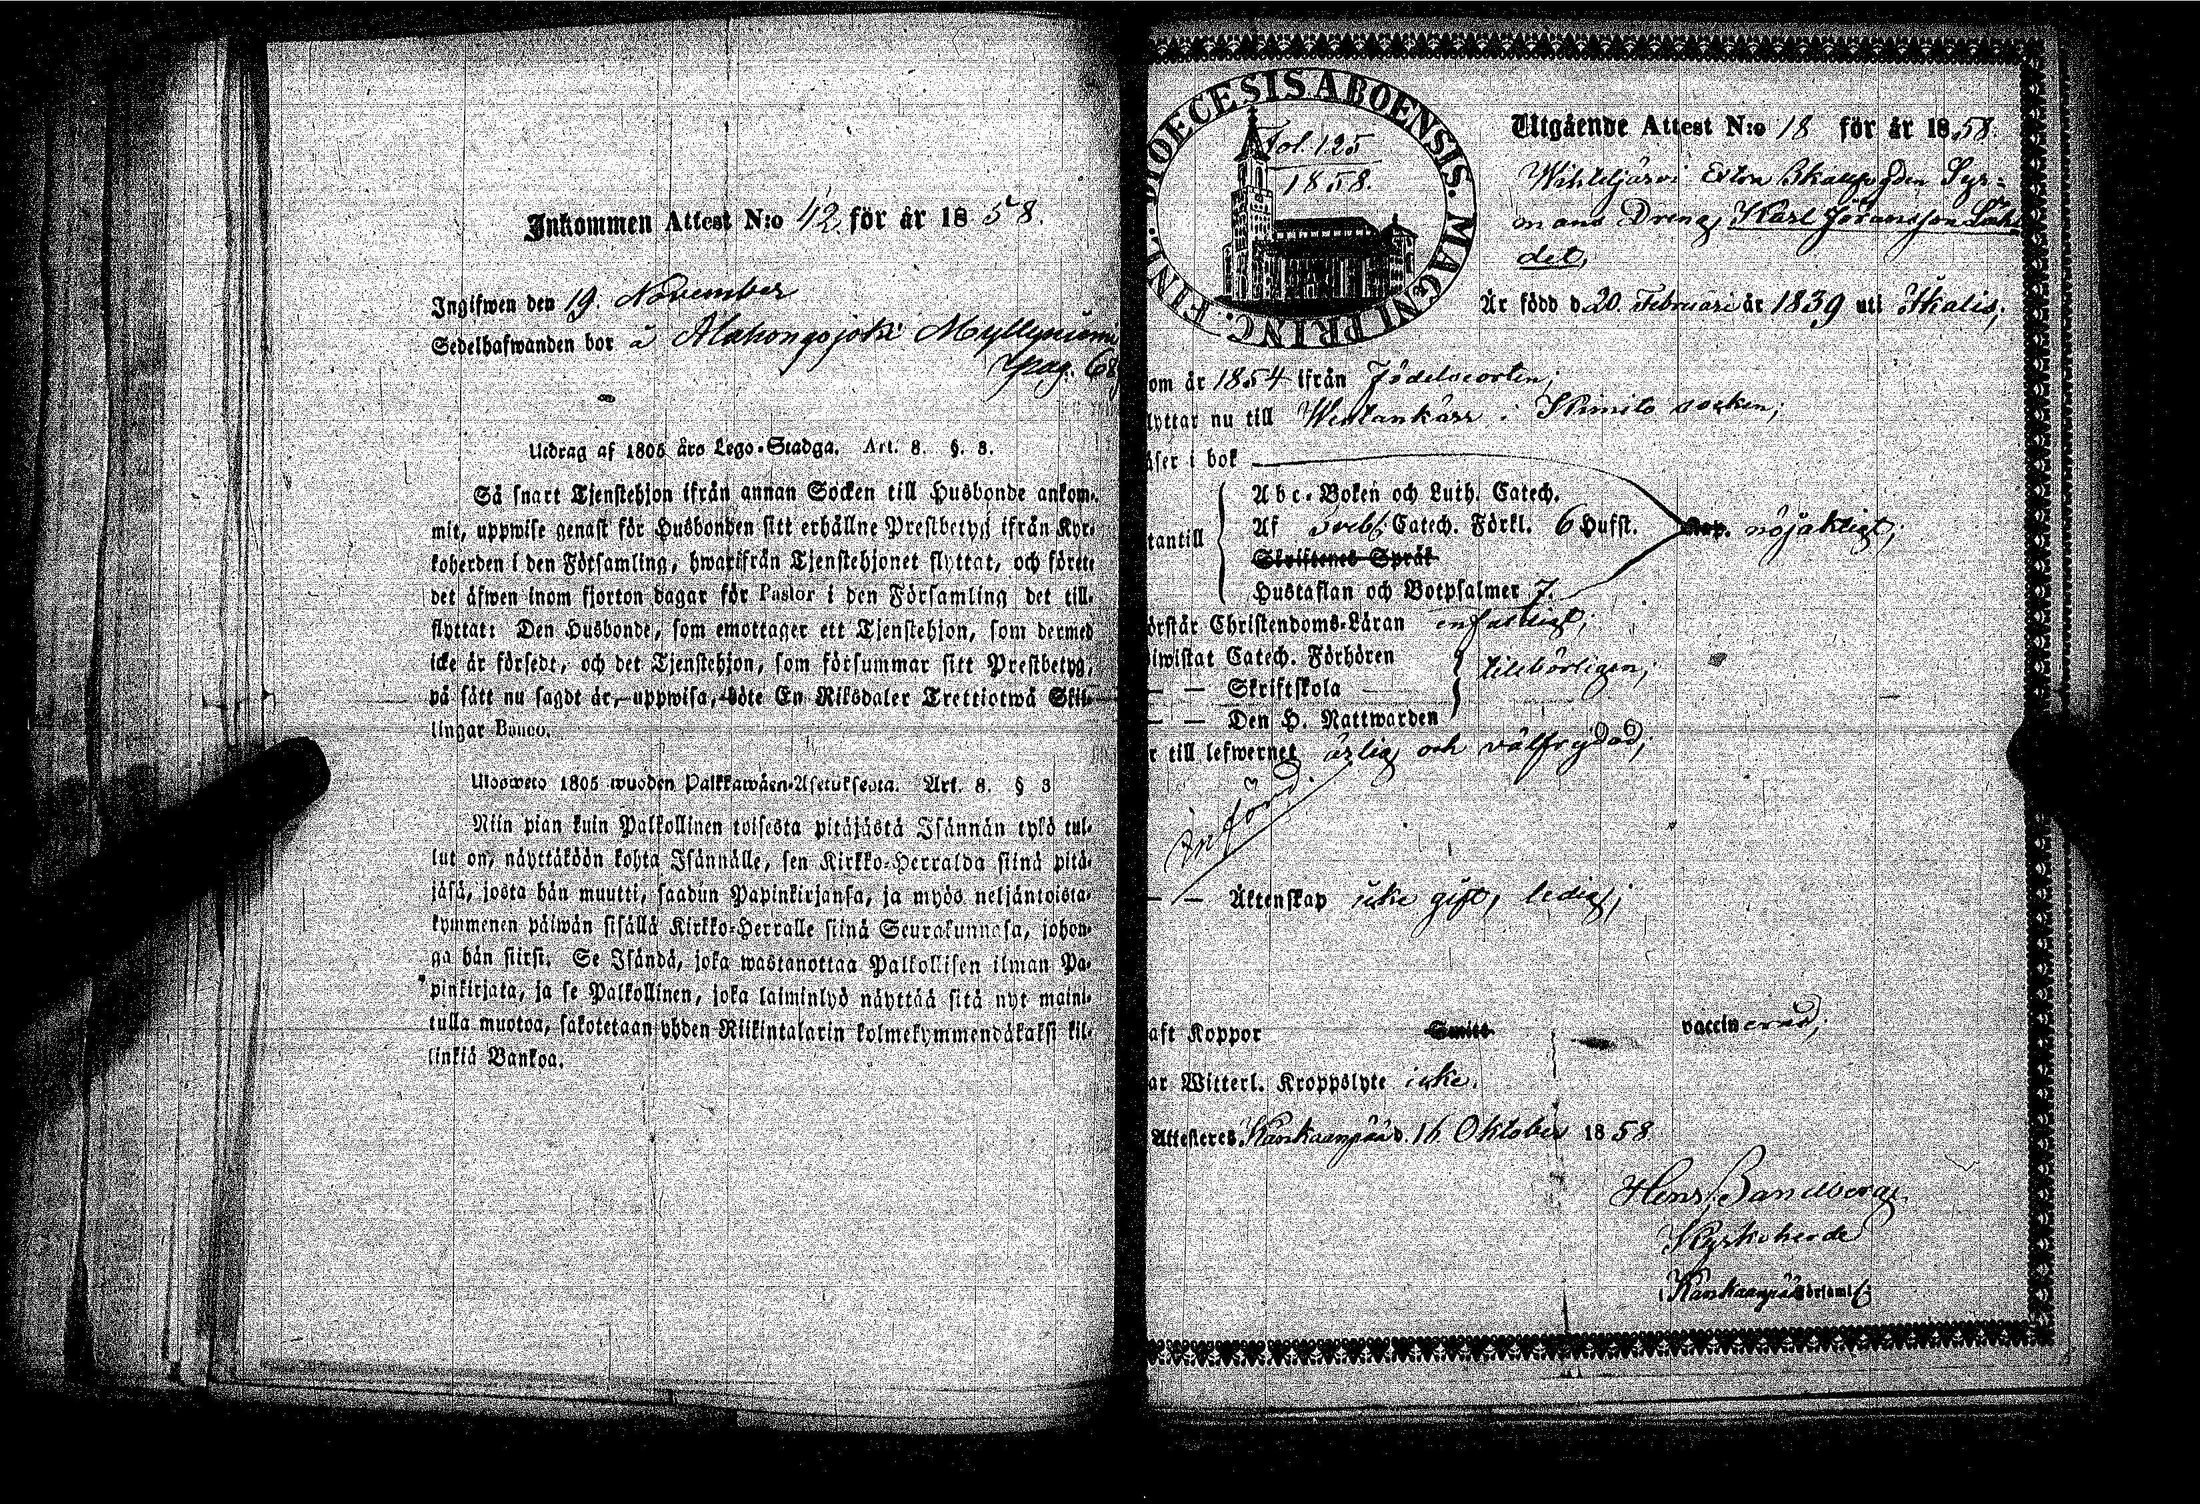 Inkommen Attest N:o 42 för år 1858.
Ingifwen den 19. November
Sedelhafwanden bor å Alahongojoki Myllyniemi
pag. 68
Utdrag af 1805 års Lego-Stadga. Art. 8. §. 3.
Så snart Tjenstehjon ifrån annan Socken till Husbonde ankom-
mit, uppwise genast för Husbonden sitt erhållne Prestbetyg ifrån Kyr-
koherden i den Församling, hwarifrån Tjenstehjonet flyttat, och förete
det åfwen inom fjorton dagar för Pastor i den Församling det till-
flyttat: Den Husbonde, som emottager ett Tjenstehjon, som dermed
icke är försedt, och det Tjenstehjon, som försummar sitt Prestbetyg,
på sätt nu sagdt är, uppwisa, böte En Riksdaler Trettiotwå Skil-
lingar Banco.
Ulosweto 1805 wuoden Palkkawäen-Asetuksesta. Art. 8. § 3
Niin pian kuin Palkollinen toisesta pitäjästä Isännän tykö tul-
lut on, näyttäköön kohta Isännälle, sen Kirkko-Herralda siinä pitä-
jäsä, josta hän muutti, saadun Papinkirjansa, ja myös neljäntoista-
kymmenen päiwän sisällä Kirkko-Herralle siinä Seurakunnasa, johon-
ga hän siirsi. Se Isändä, joka wastanottaa Palkollisen ilman Pa-
pinkirjata, ja se Palkollinen, joka laiminlyö näyttää sitä nyt maini-
tulla muotoa, sakotetaan yhden Riikintalarin kolmekymmendäkaksi kil-
linkiä Bankoa.
DIOECESIS ABOENSIS. MAGNI PRINC. FINL.
Fol. 125
1858.
Utgående Attest N:o 18 för år 1858.
Dreng Karl Johansson
Är född d 20. Februari år 1839 uti Ikalis,
om år 1854 ifrån Födelseorten;
lyttar nu till Westankärr i Kimito socken;
äser i bok
tantill
Abc-Boken och Luth. Catech.
Af Svebel. Catech. Förkl. 6 Hufst. nöjaktigt;
Skriftenes Språk
Hustaflan och Botpsalmer 7.
örstår Christendoms-Läran enfaldigt;
iwistat Catech. Förhören
— — Skriftskola tillbörligen;
— — Den H. Nattwarden
r till lefwernet ärlig och välfrejdad;
införd
— — Äktenskap icke gift, ledig;
aft Koppor Smitt vaccinerad;
ar Witterl. Kroppslyte icke.
Attesteres Kankaanpää d. 16 Oktober 1858
Henr. Sandberg
Kyrkoherde
i Kankaanpää Församl.